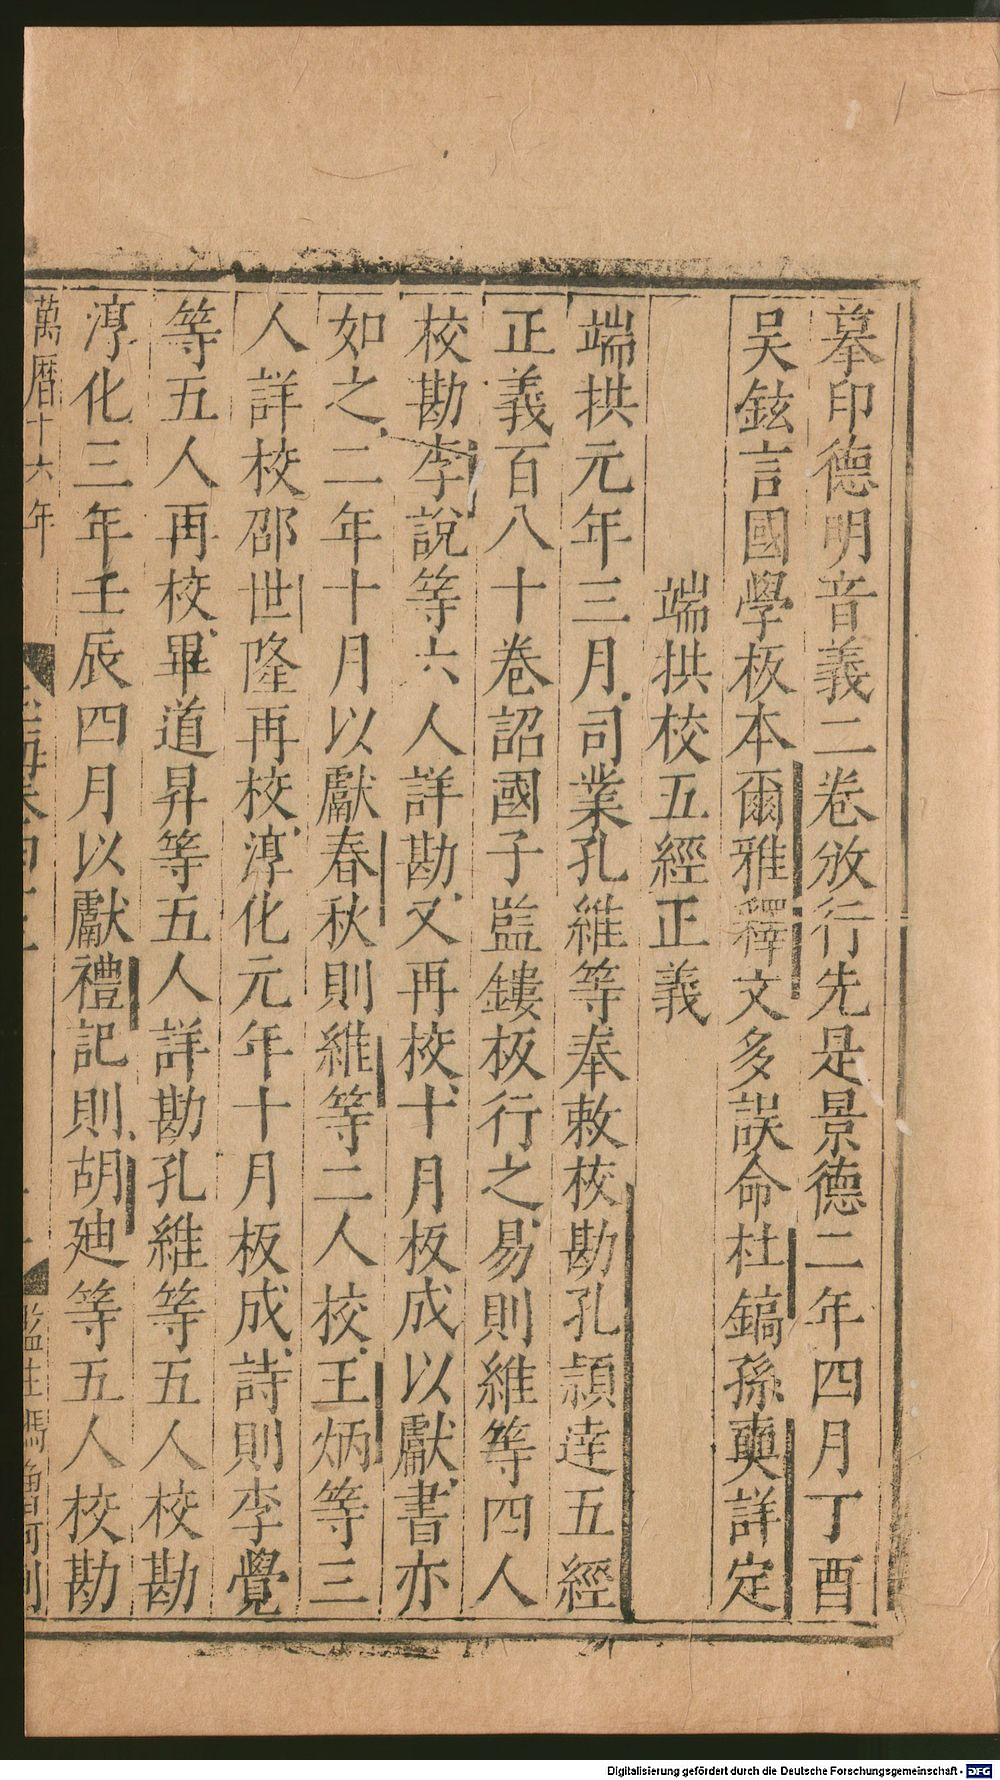 摹印德明音義二卷放行先是景德二年四月丁酉
吴鉉言國學板本爾雅釋文多誤命杜鎬孫奭詳定
端拱校五經正義
端拱元年三月司業孔維等奉敕校勘孔頴逹五經
正義百八十卷詔國子監鏤板行之易則維等四人
校勘李說等六人詳勘又再校十月板成以獻書亦
如之二年十月以獻春秋則維等二人校王炳等三
人詳校邵世隆再校淳化元年十月板成詩則李覺
等五人再校畢道昇等五人詳勘孔維等五人校勘
淳化三年壬辰四月以獻禮記則胡廸等五人校勘
萬曆十六年
Digitalisierung gefördert durch die Deutsche Forschungsgemeinschaft - DFG